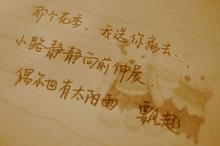 那个花季、我送你离去、
小路静静向前伸展
偶尔也有太阳雨 飘起